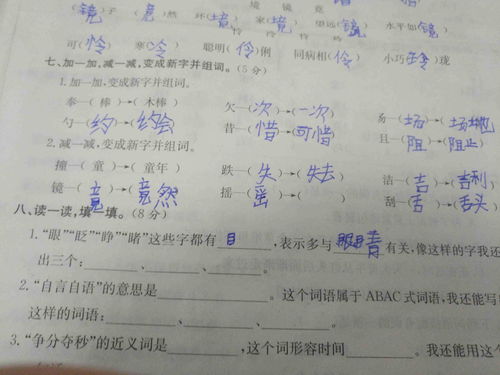 境 镜 竟
(镜)子 (竟)然 环(境) 家(境) 望远(镜) 水平如(镜)
怜 伶 怜 伶 玲
可(怜) 寒(冷) 聪明(伶)俐 同病相(伶) 小巧(玲)珑
七、加一加,减一减,变成新字并组词。(5分)
1.加一加,变成新字并组词。
奉—(棒)→(木棒) 欠—(次)→(一次) 昜—(场)→(场地)
勺—(约)→(约会) 昔—(惜)→(可惜) 且—(阻)→(阻止)
2.减一减,变成新字并组词。
撞—(童)→(童年) 跌—(失)→(失去) 洁—(吉)→(吉利)
镜—(竟)→(竟然) 摇—(䍃)→( ) 刮—(舌)→(舌头)
八、读一读,填一填。(8分)
1.“眼”“眨”“睁”“睹”这些字都有 目 ,表示多与 眼睛 有关,像这样的字我还
出三个:______、______、______。
2.“自言自语”的意思是__________。这个词语属于ABAC式词语,我还能写
这样的词语:________、________、________。
3.“争分夺秒”的近义词是________,这个词形容时间________。我还能用这个